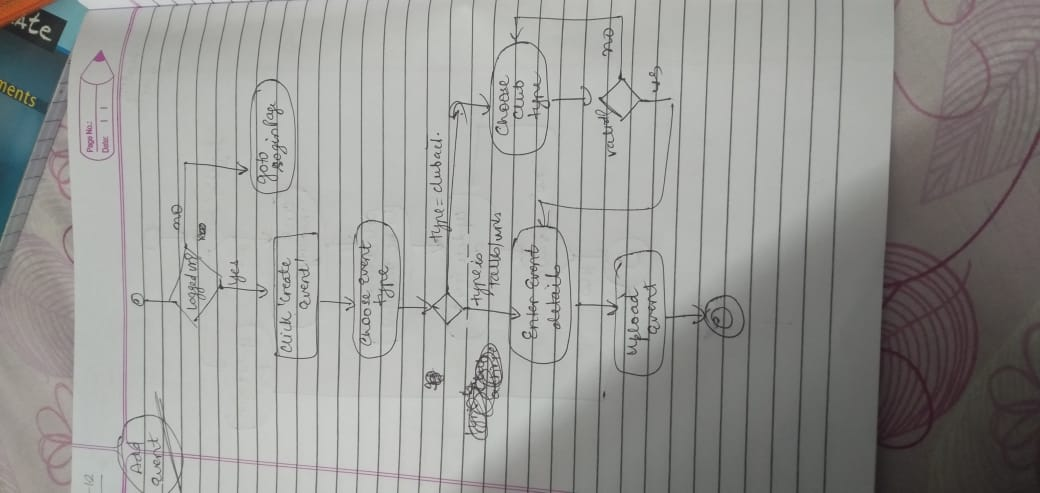 Ate
ments
Page No.:
Date:
Add
event
Logged in?
no
yes
goto
loginPage
Click 'Create
event'
Choose event
type
type = clubact.
type is
talks/wks
Choose
club
type
valid
no
yes
Enter event
details
upload
event